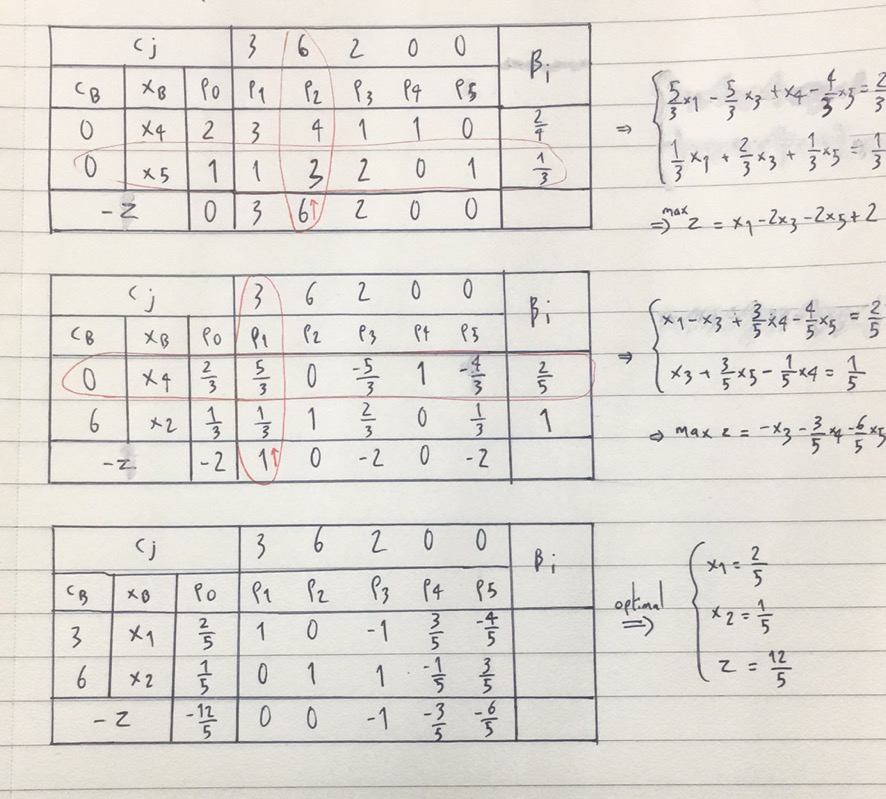 Cj 3 6 2 0 0 βi
CB XB P0 P1 P2 P3 P4 P5
0 x4 2 3 4 1 1 0 2/4
0 x5 1 1 3 2 0 1 1/3
-Z 0 3 6↑ 2 0 0
⇒ { 5/3 x1 - 5/3 x3 + x4 - 4/3 x5 = 2/3
1/3 x1 + 2/3 x3 + 1/3 x5 = 1/3
⇒ max Z = x1 - 2x3 - 2x5 + 2
Cj 3 6 2 0 0 βi
CB XB P0 P1 P2 P3 P4 P5
0 x4 2/3 5/3 0 -5/3 1 -4/3 2/5
6 x2 1/3 1/3 1 2/3 0 1/3 1
-Z -2 1↑ 0 -2 0 -2
⇒ { x1 - x3 + 3/5 x4 - 4/5 x5 = 2/5
x3 + 3/5 x5 - 1/5 x4 = 1/5
⇒ max z = -x3 - 3/5 x4 - 6/5 x5
Cj 3 6 2 0 0 βi
CB XB P0 P1 P2 P3 P4 P5
3 x1 2/5 1 0 -1 3/5 -4/5
6 x2 1/5 0 1 1 -1/5 3/5
-Z -12/5 0 0 -1 -3/5 -6/5
optimal ⇒ { x1 = 2/5
x2 = 1/5
Z = 12/5